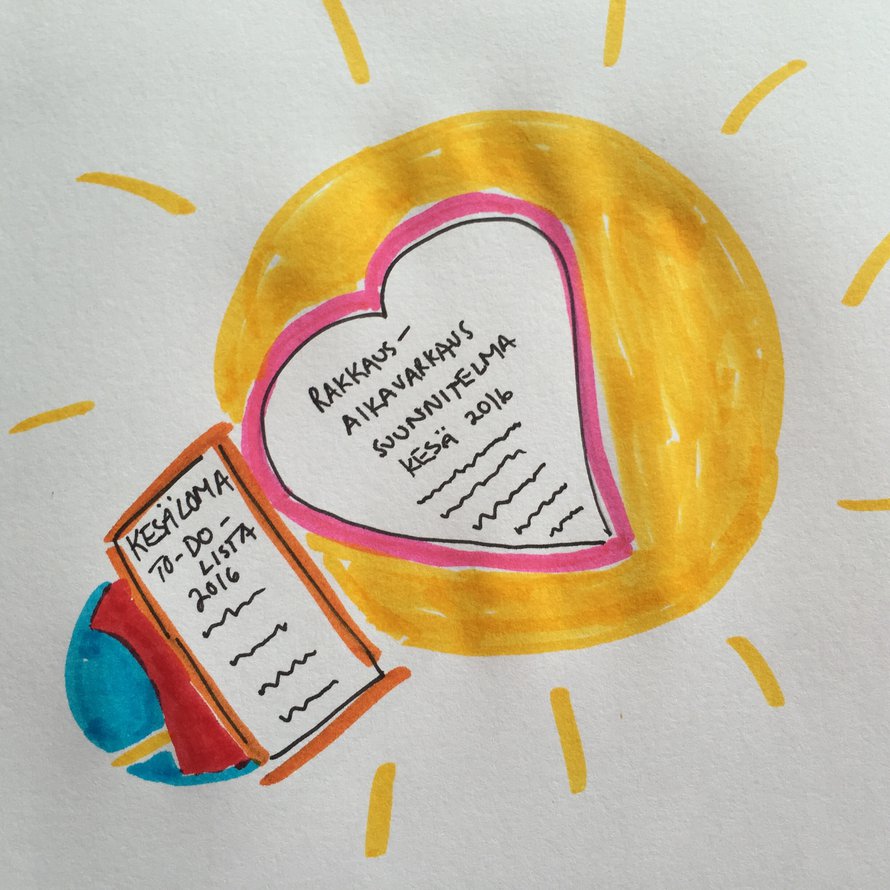 RAKKAUS-
AIKAVARKAUS
SUUNNITELMA
KESÄ 2016
KESÄLOMA
TO-DO-
LISTA
2016